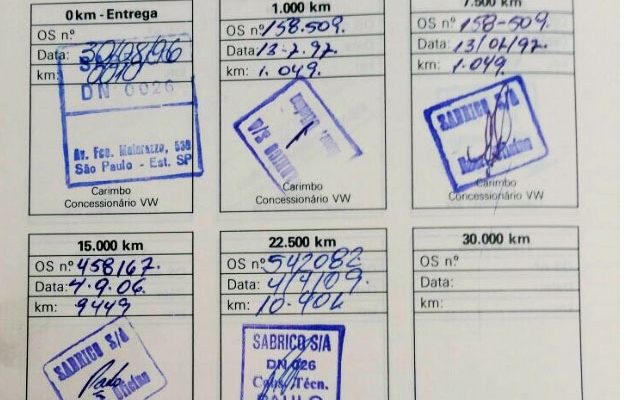 0 km - Entrega
OS nº
Data: 30/08/96
km: 0010
DN 0026
Av. Fco. Matarazzo, 530
São Paulo - Est. SP
Carimbo
Concessionário VW
1.000 km
OS nº 158.509.
Data: 13-2-97.
km: 1.049.
SABRICO S/A
Carimbo
Concessionário VW
7.500 km
OS nº 158-509.
Data: 13/02/97.
km: 1.049.
SABRICO S/A
Oficina
Carimbo
Concessionário VW
15.000 km
OS nº 458167.
Data: 4.9.06.
km: 9449
SABRICO S/A
Oficina
22.500 km
OS nº 542082
Data: 4/9/09.
km: 10.904
SABRICO S/A
DN 026
Cons. Técn.
PAULO
30.000 km
OS nº
Data:
km: